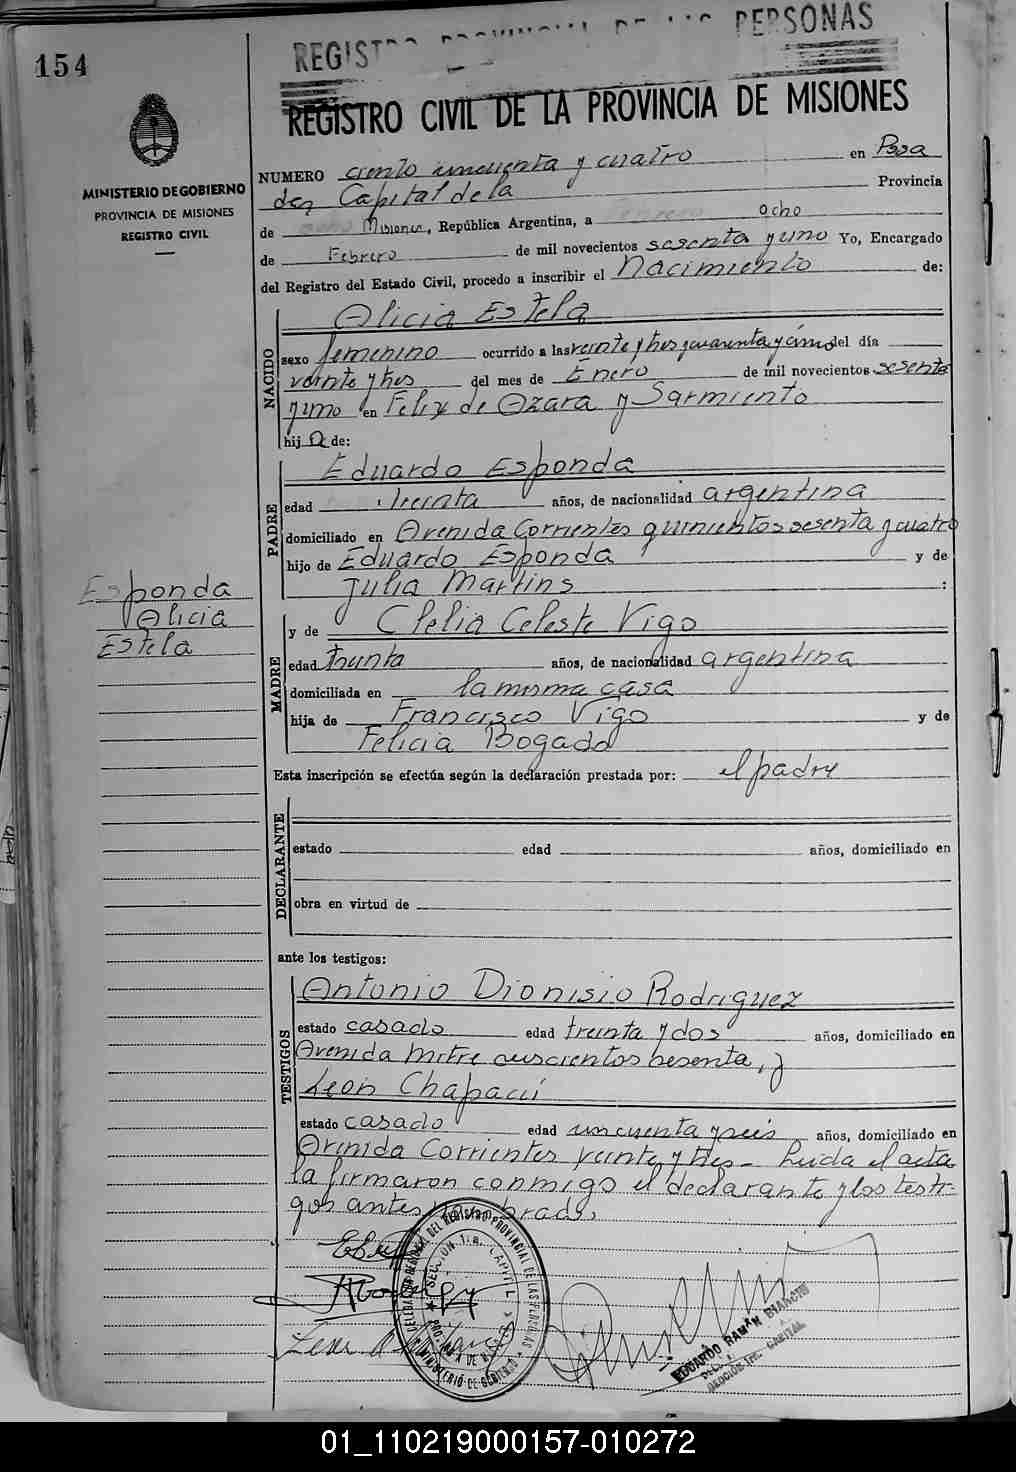 154
REGISTRO PROVINCIAL DE LAS PERSONAS
REGISTRO CIVIL DE LA PROVINCIA DE MISIONES
MINISTERIO DE GOBIERNO
PROVINCIA DE MISIONES
REGISTRO CIVIL
NUMERO ciento cincuenta y cuatro en Posa
das Capital de la Provincia
de Misiones, República Argentina, a ocho
de Febrero de mil novecientos sesenta y uno Yo, Encargado
del Registro del Estado Civil, procedo a inscribir el Nacimiento de:
NACIDO
Alicia Estela
sexo femenino ocurrido a las veinte y tres y cuarenta y cinco del día
veinte y tres del mes de Enero de mil novecientos sesenta
y uno en Felix de Azara y Sarmiento
hij a de:
PADRE
Eduardo Esponda
edad treinta años, de nacionalidad argentina
domiciliado en Avenida Corrientes quinientos sesenta y cuatro
hijo de Eduardo Esponda y de
Julia Martins :
Esponda
Alicia
Estela
MADRE
y de Clelia Celeste Vigo
edad treinta años, de nacionalidad argentina
domiciliada en la misma casa
hija de Francisco Vigo y de
Felicia Bogado
Esta inscripción se efectúa según la declaración prestada por: el padre
DECLARANTE
estado edad años, domiciliado en
obra en virtud de
ante los testigos:
TESTIGOS
Antonio Dionisio Rodriguez
estado casado edad treinta y dos años, domiciliado en
Avenida Mitre sesenta, y
Leon Chapacú
estado casado edad cincuenta y seis años, domiciliado en
Avenida Corrientes veinte y tres - Leida el acta
la firmaron conmigo el declarante y los testi-
gos antes nombrados.
DELEGACION GENERAL DEL REGISTRO PROVINCIAL DE LAS PERSONAS
SECCION 1ra. CAPITAL
MINISTERIO DE GOBIERNO
EDUARDO RAMÓN BIANCHI
SECCIÓN 1ra. CAPITAL
01_110219000157-010272